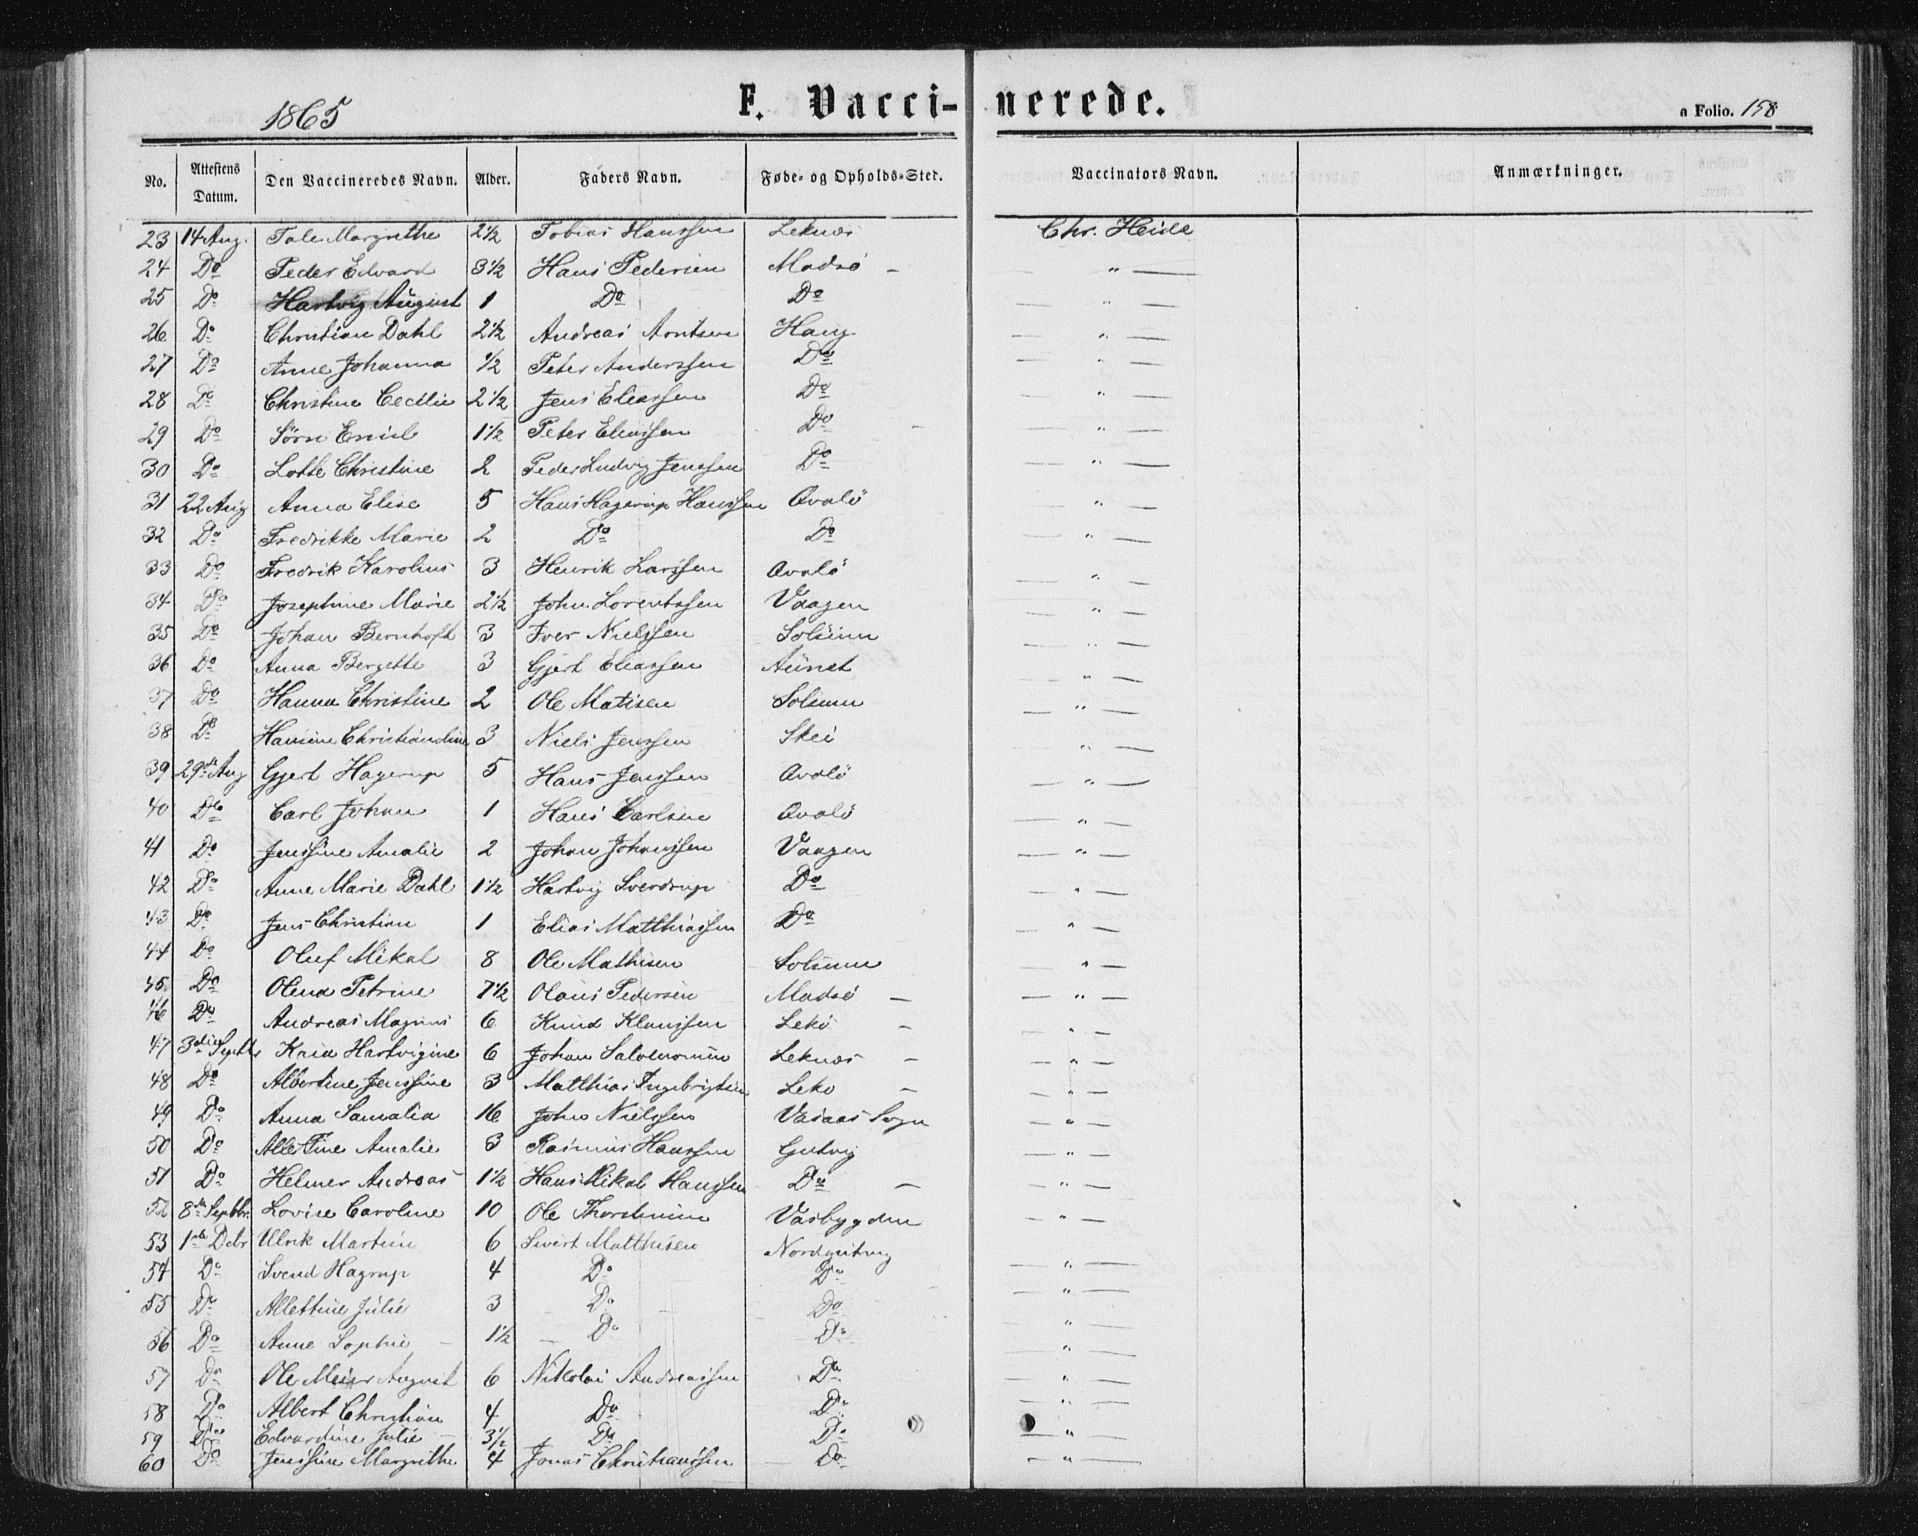 1865 F. Vacci- nerede. a Folio. 158
No. Attestens Datum. Den Vaccineredes Navn. Alder. Faders Navn. Føde- og Opholds-Sted. Vaccinators Navn. Anmærkninger.
23 14 Aug. Tale Margrethe 2½ Tobias Hanssen Leknæs Chr. Heide
24 Do Peder Edvard 3½ Hans Pedersen Madsö — — " —
25 Do Hartvig August 1 Do Do — " —
26 Do Christian Dahl 2½ Andreas Arntsen Haug — " —
27 Do Anne Johanna ½ Peter Anderssen Do — " —
28 Do Christine Cecilie 2½ Jens Eliassen Do — " —
29 Do Sörn Emil 1½ Peter Eliassen Do — " —
30 Do Lotte Christine 2 Peder Ludvig Jenssen Do — " —
31 22 Aug Anna Elise 5 Hans Hagerup Hanssen Avalö — " —
32 Do Fredrikke Marie 2 Do Do — " —
33 Do Fredrik Karolius 3 Henrik Larssen Avalö — " —
34 Do Josephine Marie 2½ John Lorentssen Vaagen — " —
35 Do Johan Bernhoft 3 Iver Nielssen Solsem — " —
36 Do Anna Bergette 3 Gjert Eliassen Aunet — " —
37 Do Hanna Christine 2 Ole Matisen Solsem — " —
38 Do Hansine Christiandine 3 Niels Jenssen Skei — " —
39 29de Aug Gjert Hagerup 5 Hans Jenssen Avalö — " —
40 Do Carl Johan 1 Hans Carlsen Avalö — " —
41 Do Jenssine Amalie 2 Johan Johanssen Vaagen — " —
42 Do Anne Marie Dahl 1½ Hartvig Sverdrup Do — " —
43 Do Jens Christian 1 Elias Matthiassen Do — " —
44 Do Oluf Mikal 8 Ole Mathisen Solsem — " —
45 Do Olena Petrine 7½ Olaus Pedersen Madsö — — " —
46 Do Andreas Magnus 6 Knud Klaussen Lekö — — " —
47 3die Septbr Kaia Hartvigine 6 Johan Leknæs — — " —
48 Do Albertine Jenssine 3 Matthias Ingebrigtsen Leko — — " —
49 Do Anna Samalia 16 John Nielssen Vasaas Sogn — " —
50 Do Alletine Amalie 3 Rasmus Hanssen Gutvig — " —
51 Do Helmer Andreas 1½ Hans Mikal Hanssen Do — — " —
52 8de Septbr. Lovise Caroline 10 Ole Thorsteinsen Vasbygden — " —
53 1ste Debr Ulrik Martin 6 Sivert Matthisen Nordgutvig
54 Do Svend Hagrup 4 Do Do — " —
55 Do Allettine Julie 3 Do Do — " —
56 Do Anne Sophie 1½ Do Do — " —
57 Do Ole Meier August 6 Nikolai Andreassen Do — " —
58 Do Albert Christian 4 Do Do — " —
59 Do Edvardine Julie 3½ Do Do — " —
60 Do Jenssine Margrethe 4 Jonas Christianssen Do — " —